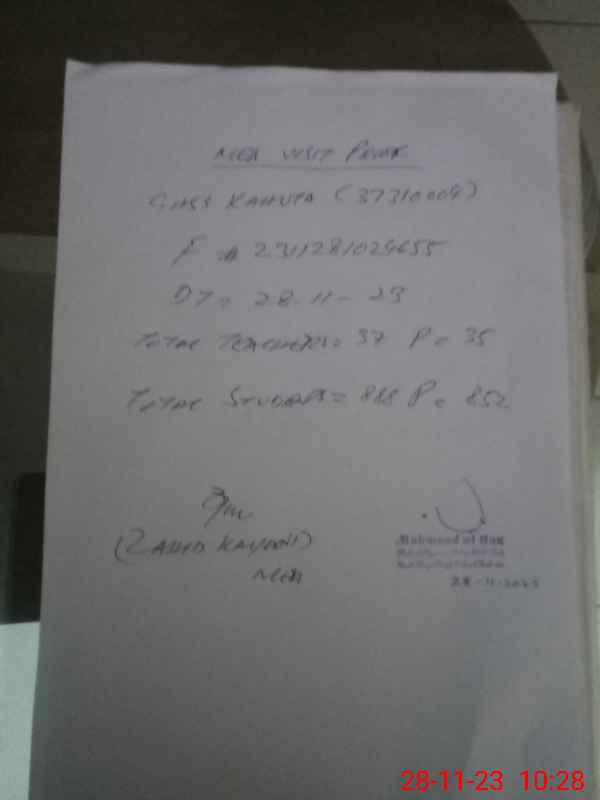 MEA VISIT PROOF
GHSS KAHUTA (37310009)
F # 2311281029655
DT = 28-11-23
TOTAL TEACHERS = 37 P = 35
TOTAL STUDENTS = 888 P = 852
(ZAHID KAYANI)
MEA
Mahmood ul Haq
28-11-2023
28-11-23 10:28